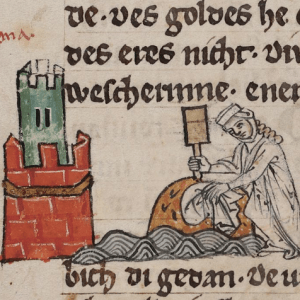 ma.
de· ves goldes he
des eres nicht· vn
wescherinne· ener
bich di gedan· ve u